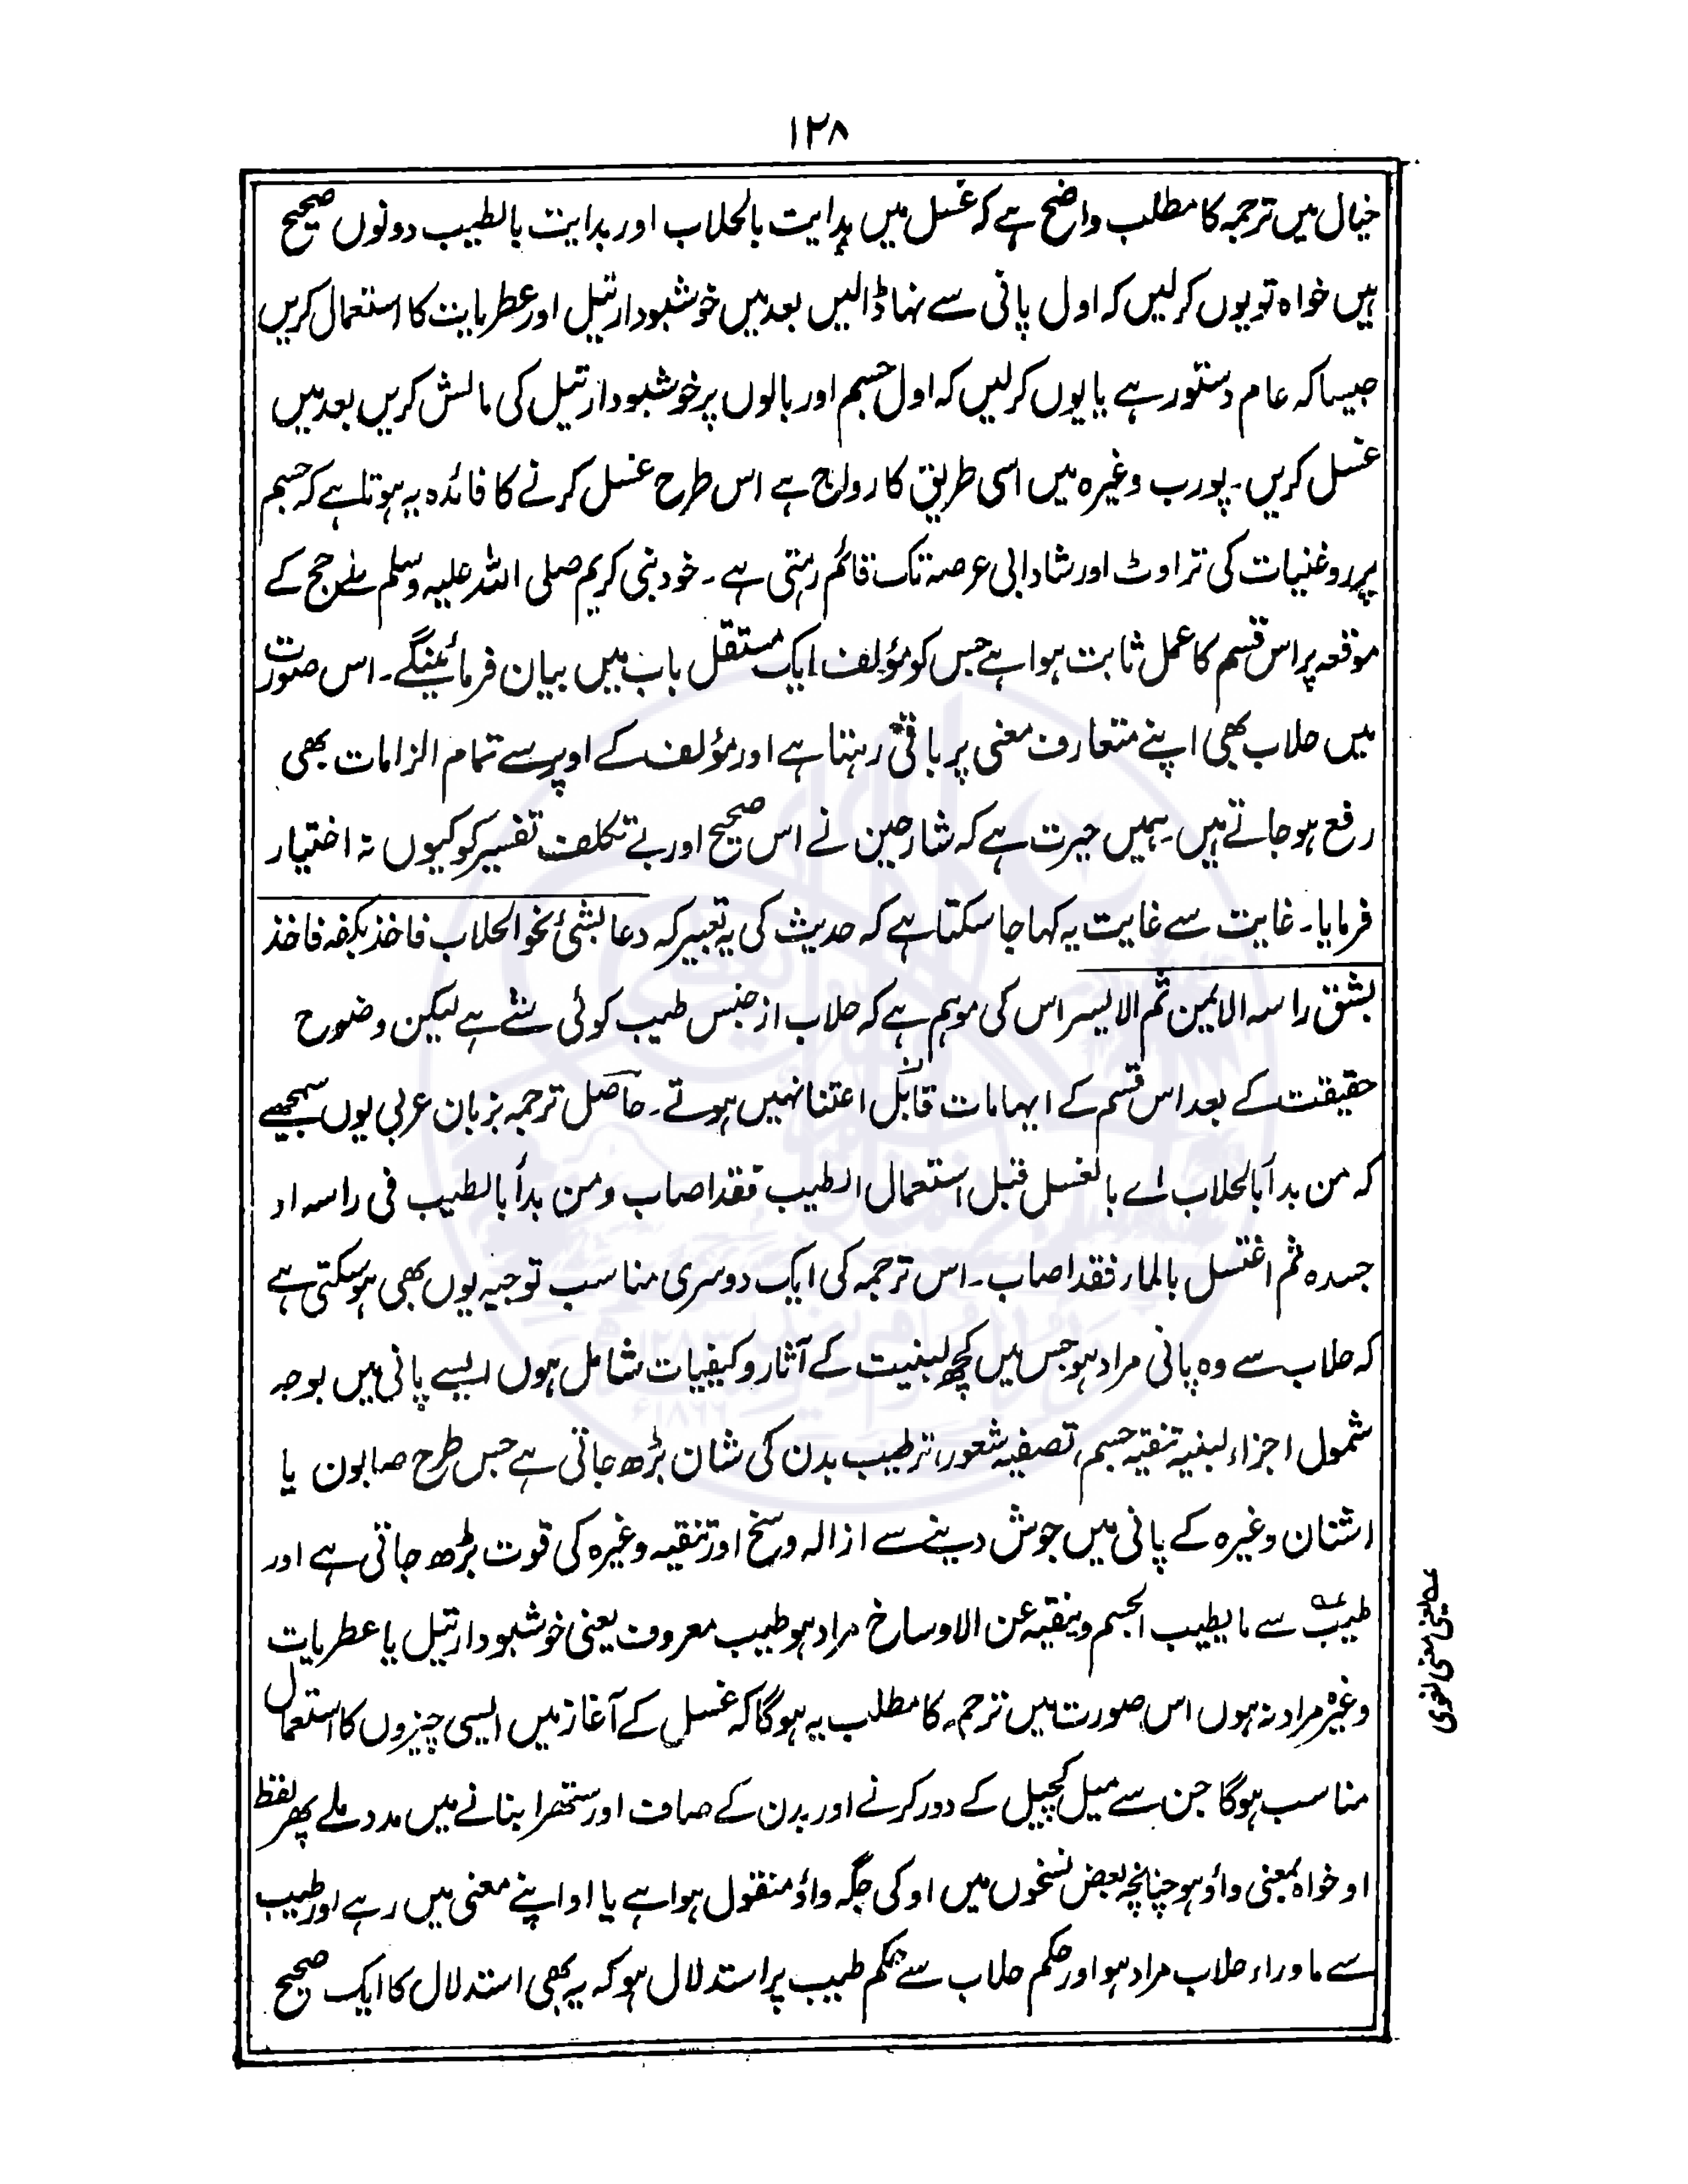 ۱۲۸
خیال میں ترجمہ کا مطلب واضح ہے کہ غسل میں بدایت بالحلاب اور بدایت بالطیب دونوں صحیح
ہیں خواہ تو یوں کرلیں کہ اول پانی سے نہا ڈالیں بعد میں خوشبودار تیل اور عطریات کا استعمال کریں
جیسا کہ عام دستور ہے یا یوں کرلیں کہ اول جسم اور بالوں پر خوشبودار تیل کی مالش کریں بعد میں
غسل کریں۔ پورب وغیرہ میں اسی طریق کا رواج ہے اس طرح غسل کرنے کا فائدہ یہ ہوتا ہے کہ جسم
پر روغنیات کی تراوٹ اور شادابی عرصہ تک قائم رہتی ہے۔ خود نبی کریم صلی اللہ علیہ وسلم سے حج کے
موقعہ پر اس قسم کا عمل ثابت ہوا ہے جس کو مؤلف ایک مستقل باب میں بیان فرمائینگے۔ اس صورت
میں حلاب بھی اپنے متعارف معنی پر باقی رہتا ہے اور مؤلف کے اوپر سے تمام الزامات بھی
رفع ہوجاتے ہیں۔ ہمیں حیرت ہے کہ شارحین نے اس صحیح اور بے تکلف تفسیر کو کیوں نہ اختیار
فرمایا۔ غایت سے غایت یہ کہا جاسکتا ہے کہ حدیث کی یہ تعبیر کہ دعا بشئ نحو الحلاب فاخذ بکفہ فاخذ
بشق راسہ الایمن ثم الایسر اس کی موہم ہے کہ حلاب از جنس طیب کوئی شئے ہے لیکن وضوح
حقیقت کے بعد اس قسم کے ایہامات قابل اعتنا نہیں ہوتے۔ حاصل ترجمہ بزبان عربی یوں سمجھیے
کہ من بدأ بالحلاب اے بالغسل قبل استعمال الطیب فقد اصاب ومن بدأ بالطیب فی راسہ او
جسدہ ثم اغتسل بالماء فقد اصاب۔ اس ترجمہ کی ایک دوسری مناسب توجیہ یوں بھی ہوسکتی ہے
کہ حلاب سے وہ پانی مراد ہو جس میں کچھ لبنیت کے آثار وکیفیات شامل ہوں ایسے پانی میں بوجہ
شمول اجزاء لبنیہ تنقیہ جسم، تصفیہ شعور، ترطیب بدن کی شان بڑھ جاتی ہے جس طرح صابون یا
اشنان وغیرہ کے پانی میں جوش دینے سے ازالہ وسخ اور تنقیہ وغیرہ کی قوت بڑھ جاتی ہے اور
طیب عہ سے ما یطیب الجسم وینقیہ عن الاوساخ مراد ہو طیب معروف یعنی خوشبودار تیل یا عطریات
وغیرہ مراد نہ ہوں اس صورت میں ترجمہ کا مطلب یہ ہوگا کہ غسل کے آغاز میں ایسی چیزوں کا استعمال
مناسب ہوگا جن سے میل کچیل کے دور کرنے اور بدن کے صاف اور ستھرا بنانے میں مدد ملے پھر لفظ
او خواہ بمعنی واؤ ہو چنانچہ بعض نسخوں میں او کی جگہ واؤ منقول ہوا ہے یا او اپنے معنی میں رہے اور طیب
سے ماوراء حلاب مراد ہو اور حکم حلاب سے حکم طیب پر استدلال ہو کہ یہ بھی استدلال کا ایک صحیح
عہ یعنی معنی لغوی